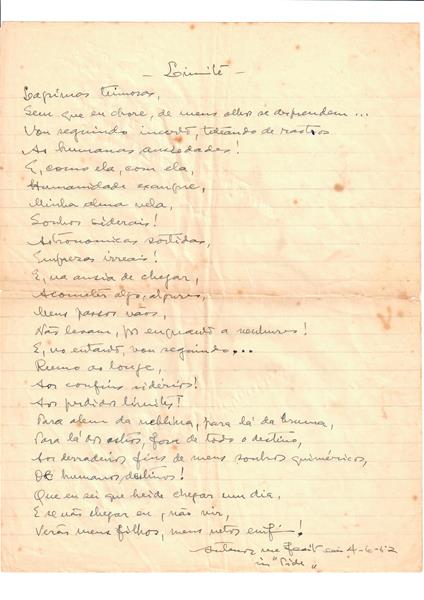 - Limite -
Lagrimas teimosas,
Sem que eu chore, de meus olhos se desprendem...
Vou seguindo incerto, tateando de rastros
As humanas ansiedades!
E, como ela, com ela,
Humanidade exangue,
Minha alma vela,
Sonhos siderais!
Astronomicas sortidas,
Emprezas irreais!
E, na ansia de chegar,
Acometer algo, algures,
Meus passos vãos,
Não levam, por enquanto a nenhures!
E, no entanto, vou seguindo...
Rumo ao longe,
Aos confins sidérios!
Aos perdidos limites!
Para alem da neblina, para lá da bruma,
Para lá dos astros, fora de todo o destino,
Aos derradeiros fins de meus sonhos quiméricos,
De humanos destinos!
Que eu sei que heide chegar um dia,
E se não chegar eu, não vir,
Verão meus filhos, meus netos enfim!
4-6-62
in "Vide"